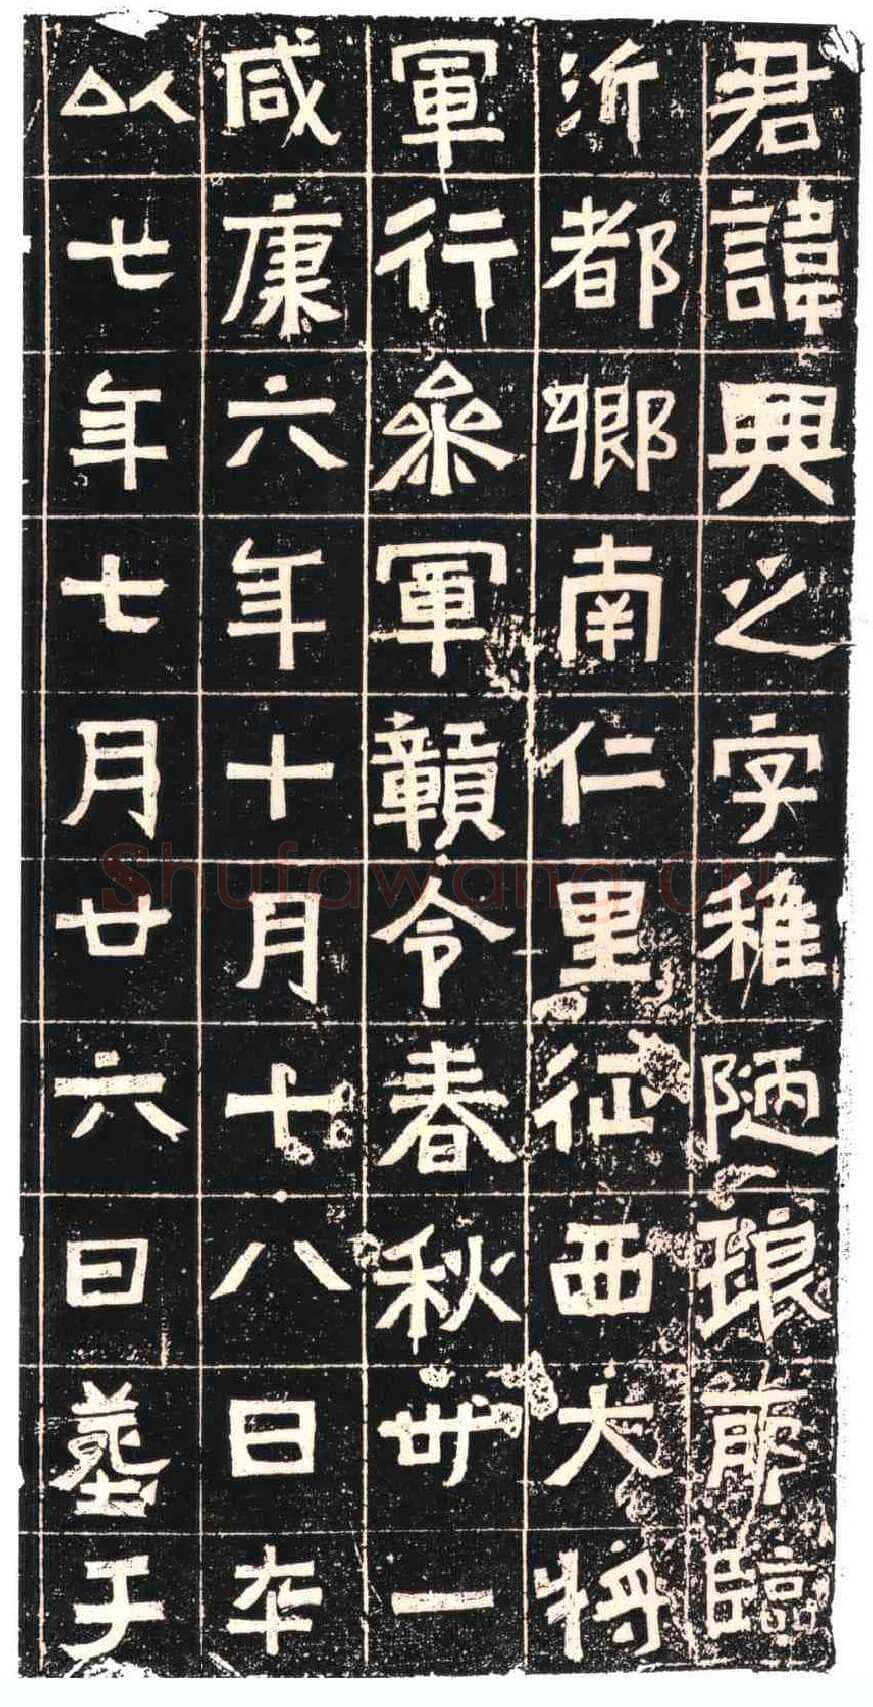 君諱興之字稚陋琅耶臨
沂都鄉南仁里征西大將
軍行參軍贛令春秋卅一
咸康六年十月十八日卒
以七年七月廿六日葬于
Shufawang.cn